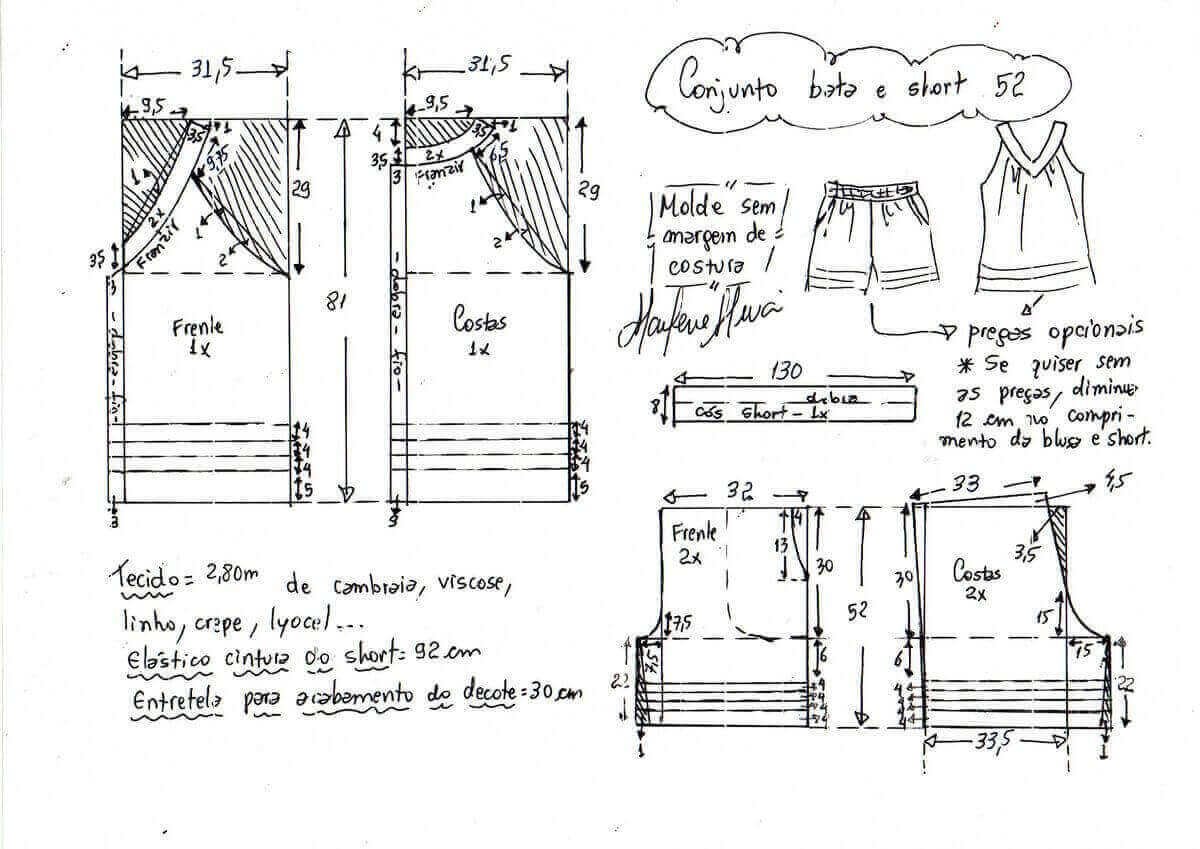 Conjunto bata e short 52
31,5
31,5
9,5
3,5
1
9,75
1
2x
Franzir
3,5
1
2
29
3
dobra - fio
Frente
1x
4
4
4
5
3
81
9,5
4
3,5
1
6,5
2x
Franzir
3,5
3
1
2
29
dobra - fio
Costas
1x
4
4
4
5
3
Molde sem
margem de
costura
Marlene Mukai
pregas opcionais
* Se quiser sem
as pregas, diminue
12 cm no compri-
mento da blusa e short.
130
8
dobra
cós short - 1x
Tecido = 2,80m de cambraia, viscose,
linho, crepe, lyocel...
Elástico cintura do short = 92 cm
Entretela para acabamento do decote = 30 cm
32
Frente
2x
4
13
30
7,5
7,5
22
6
4
4
4
4
1
52
33
4,5
3,5
Costas
2x
30
15
15
6
4
4
4
4
22
33,5
1